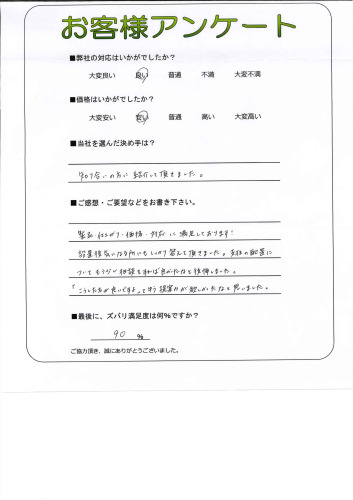 お客様アンケート
■弊社の対応はいかがでしたか?
大変良い 良い 普通 不満 大変不満
■価格はいかがでしたか?
大変安い 安い 普通 高い 大変高い
■当社を選んだ決め手は?
知り合いの方に紹介して頂きました。
■ご感想・ご要望などをお書き下さい。
仕上がり・価格・対応に満足しております!
設置後気になる所にもしっかり答えて頂きました。
ついてもう少し相談すれば良かったなと後悔しました。
「こうした方が良いですよ」と言う提案が欲しかったなと思いました。
■最後に、ズバリ満足度は何%ですか?
90 %
ご協力頂き、誠にありがとうございました。